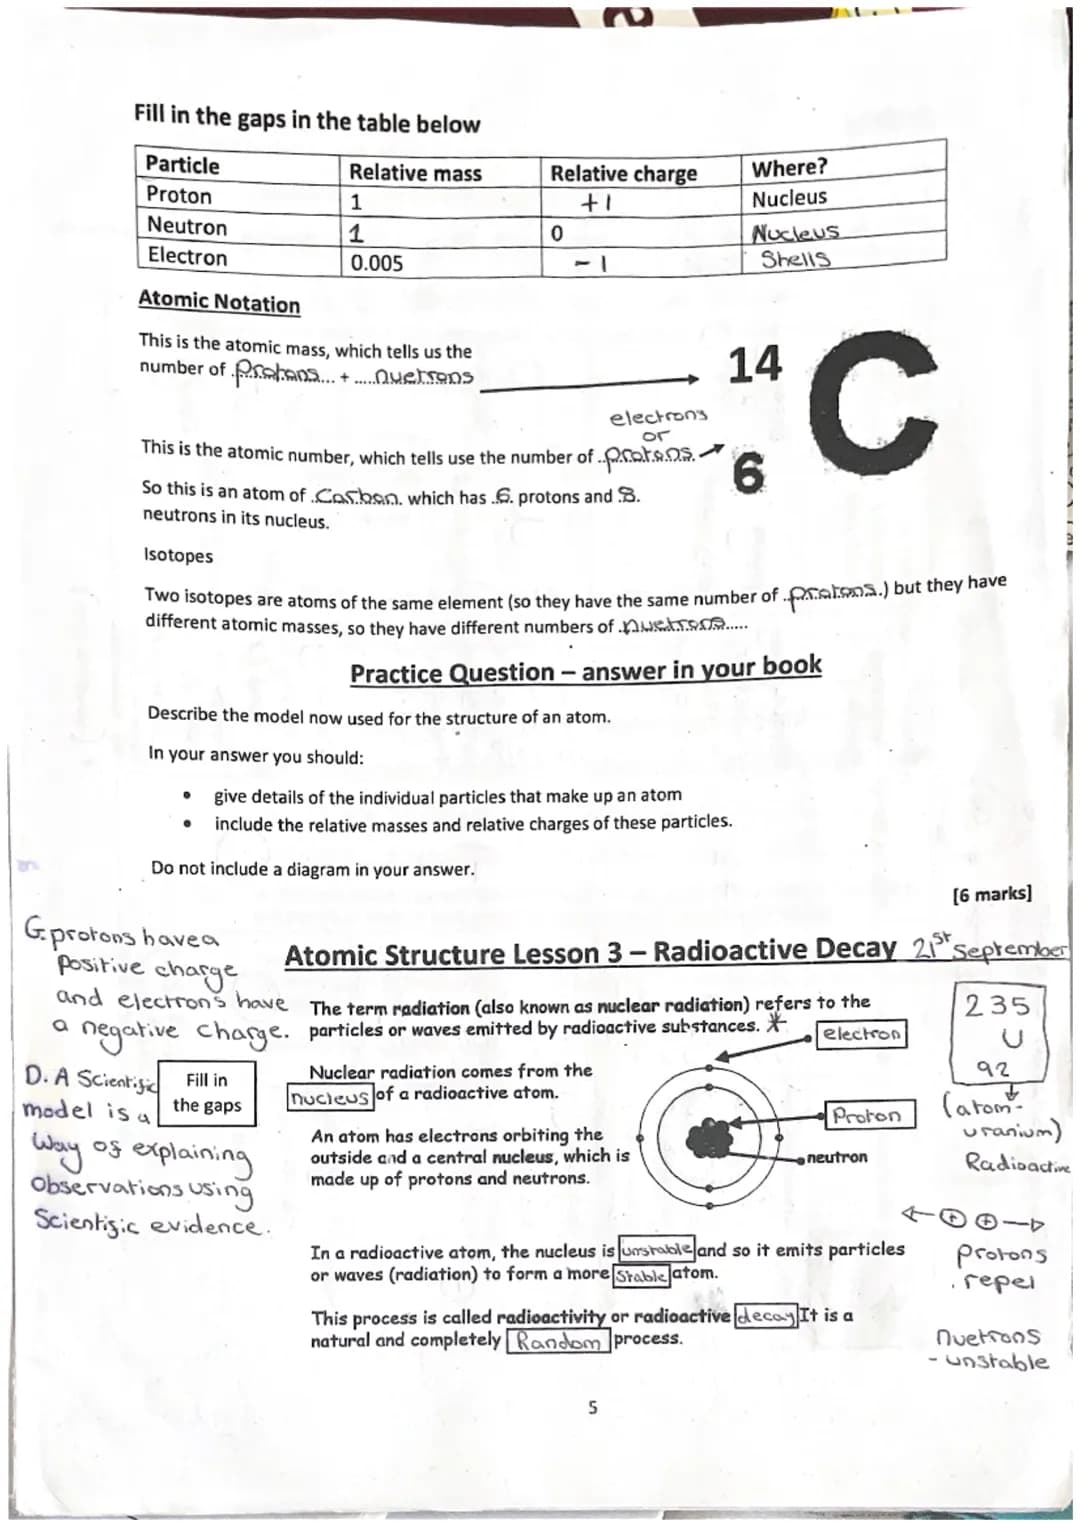 Fill in the gaps in the table below
Particle Relative mass Relative charge Where?
Proton 1 +1 Nucleus
Neutron 1 0 Nucleus
Electron 0.005 -1 Shells
Atomic Notation
This is the atomic mass, which tells us the
number of .Protons... + .....nuetrons
14 C
electrons
or
This is the atomic number, which tells use the number of ..protons.
6
So this is an atom of .Carbon. which has .6. protons and 8.
neutrons in its nucleus.
Isotopes
Two isotopes are atoms of the same element (so they have the same number of ..protons.) but they have
different atomic masses, so they have different numbers of .nuetrons.....
Practice Question – answer in your book
Describe the model now used for the structure of an atom.
In your answer you should:
• give details of the individual particles that make up an atom
• include the relative masses and relative charges of these particles.
Do not include a diagram in your answer.
[6 marks]
G. protons have a
Positive charge
and electrons have
a negative charge.
D. A Scientific
model is a
Way of explaining
observations using
Scientific evidence.
Fill in
the gaps
Atomic Structure Lesson 3 – Radioactive Decay 21st September
The term radiation (also known as nuclear radiation) refers to the
particles or waves emitted by radioactive substances. *
Nuclear radiation comes from the
nucleus of a radioactive atom.
An atom has electrons orbiting the
outside and a central nucleus, which is
made up of protons and neutrons.
electron
Proton
neutron
235
U
92
(atom-
uranium)
Radioactive
In a radioactive atom, the nucleus is unstable and so it emits particles
or waves (radiation) to form a more Stable atom.
This process is called radioactivity or radioactive decay It is a
natural and completely Random process.
+ +
protons
repel
nuetrons
- unstable
5